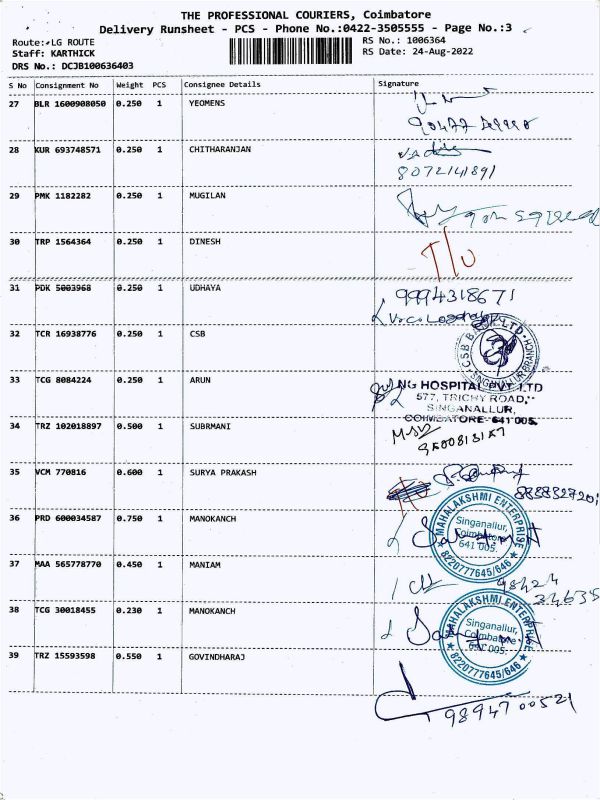 THE PROFESSIONAL COURIERS, Coimbatore
Delivery Runsheet - PCS - Phone No.:0422-3505555 - Page No.:3
Route: LG ROUTE
Staff: KARTHICK
DRS No.: DCJB100636403
RS No.: 1006364
RS Date: 24-Aug-2022
S No Consignment No Weight PCS Consignee Details Signature
27 BLR 1600908050 0.250 1 YEOMENS
28 KUR 693748571 0.250 1 CHITHARANJAN
8072141891
29 PMK 1182282 0.250 1 MUGILAN
30 TRP 1564364 0.250 1 DINESH
31 PDK 5003968 0.250 1 UDHAYA
9994318671
32 TCR 16938776 0.250 1 CSB
CSB BANK LTD
SINGANALLUR BRANCH
33 TCG 8084224 0.250 1 ARUN
NG HOSPITAL PVT LTD
577, TRICHY ROAD,
SINGANALLUR,
COIMBATORE-641 005.
34 TRZ 102018897 0.500 1 SUBRMANI
35 VCM 770816 0.600 1 SURYA PRAKASH
36 PRD 600034587 0.750 1 MANOKANCH
MAHALAKSHMI ENTERPRISE
Singanallur,
Coimbatore
641 005.
8220777645/646
37 MAA 565778770 0.450 1 MANIAM
98424
34635
38 TCG 30018455 0.230 1 MANOKANCH
MAHALAKSHMI ENTERPRISE
Singanallur,
Coimbatore
641 005.
8220777645/646
39 TRZ 15593598 0.550 1 GOVINDHARAJ
9894700521